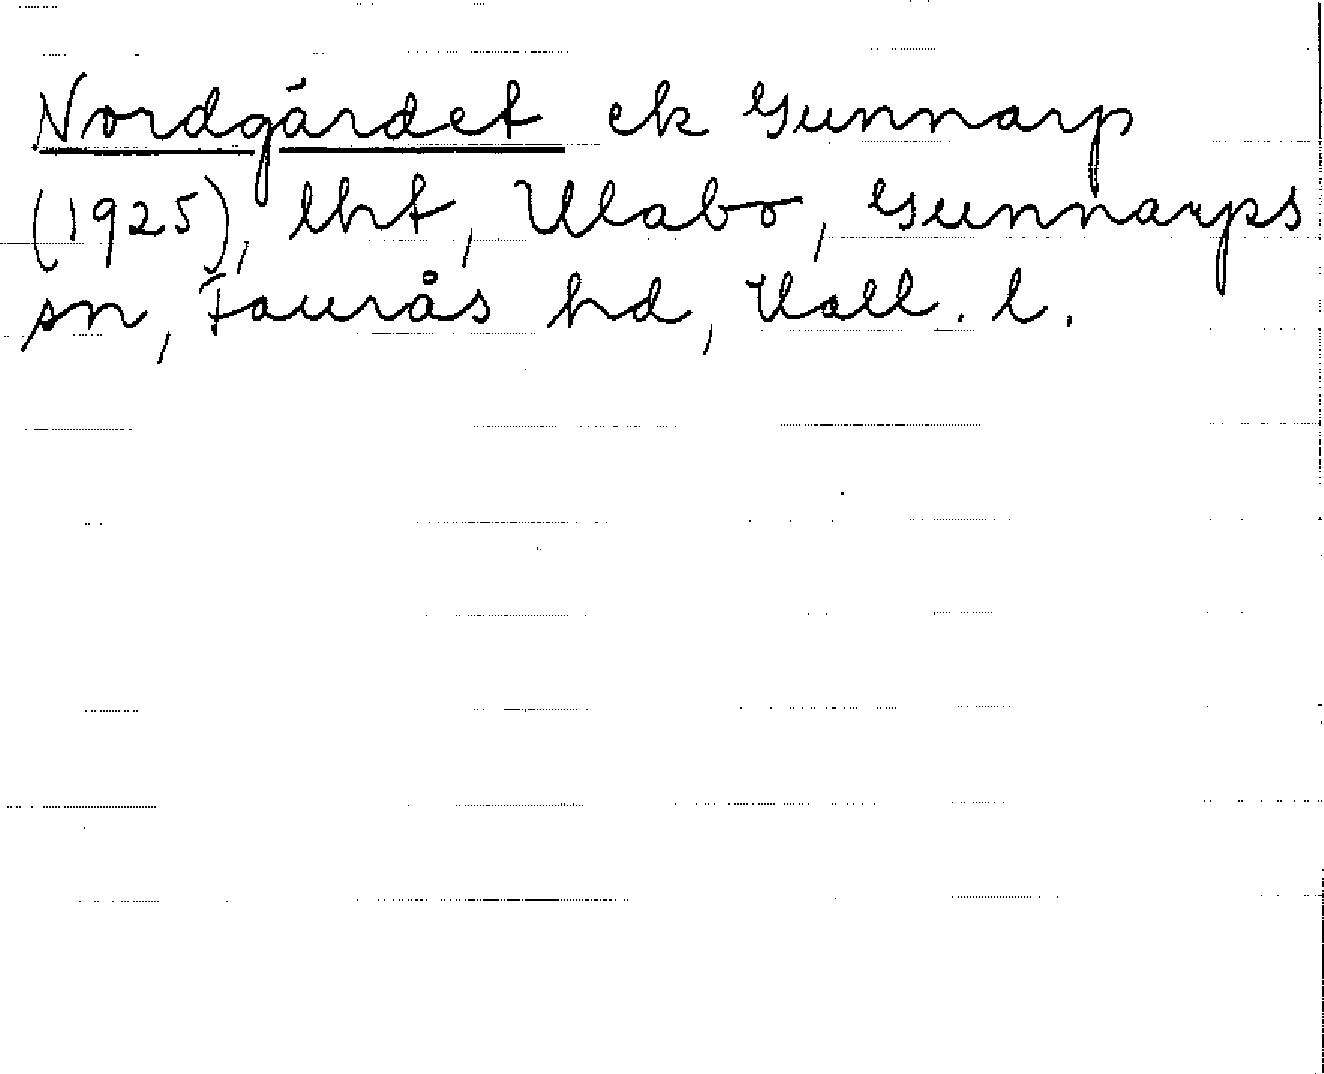 Nordgärdet ek Gunnarp
(1925), lht, Ulabo, Gunnarps
sn, Faurås hd, Hall. l.